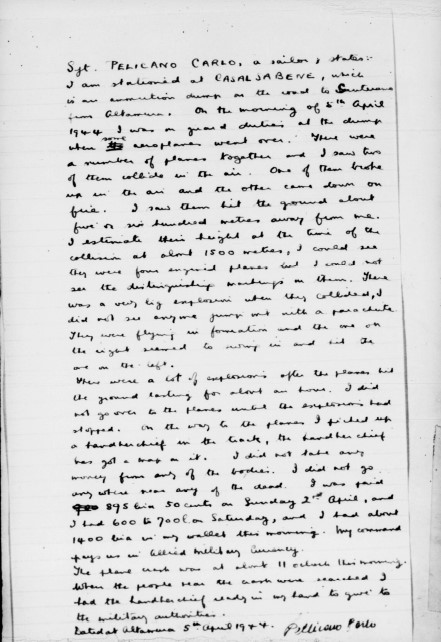 Sgt. PELICANO CARLO, a sailor, states:-
I am stationed at CASALSABENE, which
is an ammunition dump on the road to
from Altamura. On the morning of 5th April
1944 I was on guard duties at the dump
when some aeroplanes went over. There were
a number of planes together and I saw two
of them collide in the air. One of them broke
up in the air and the other came down on
fire. I saw them hit the ground about
five or six hundred metres away from me.
I estimate their height at the time of the
collision at about 1500 metres, I could see
they were four engined planes but I could not
see the distinguishing markings on them. There
was a very big explosion when they collided, I
did not see anyone jump out with a parachute
They were flying in formation and the one on
the right seemed to swing in and hit the
one on the left.
There were a lot of explosions after the planes hit
the ground lasting for about an hour. I did
not go over to the planes until the explosions had
stopped. On the way to the planes I picked up
a handkerchief in the track, the handkerchief
has got a map on it. I did not take any
money from any of the bodies. I did not go
anywhere near any of the dead. I was paid
895 lira 50 cents on Sunday 2nd April, and
I had 600 to 700 on Saturday, and I had about
1400 lira in my wallet this morning. My command
pays us in Allied Military Currency.
The plane crash was at about 11 o'clock this morning.
When the people near the crash were searched I
had the handkerchief ready in my hand to give to
the military authorities.
Dated at Altamura 5th April 1944. Pellicano Carlo